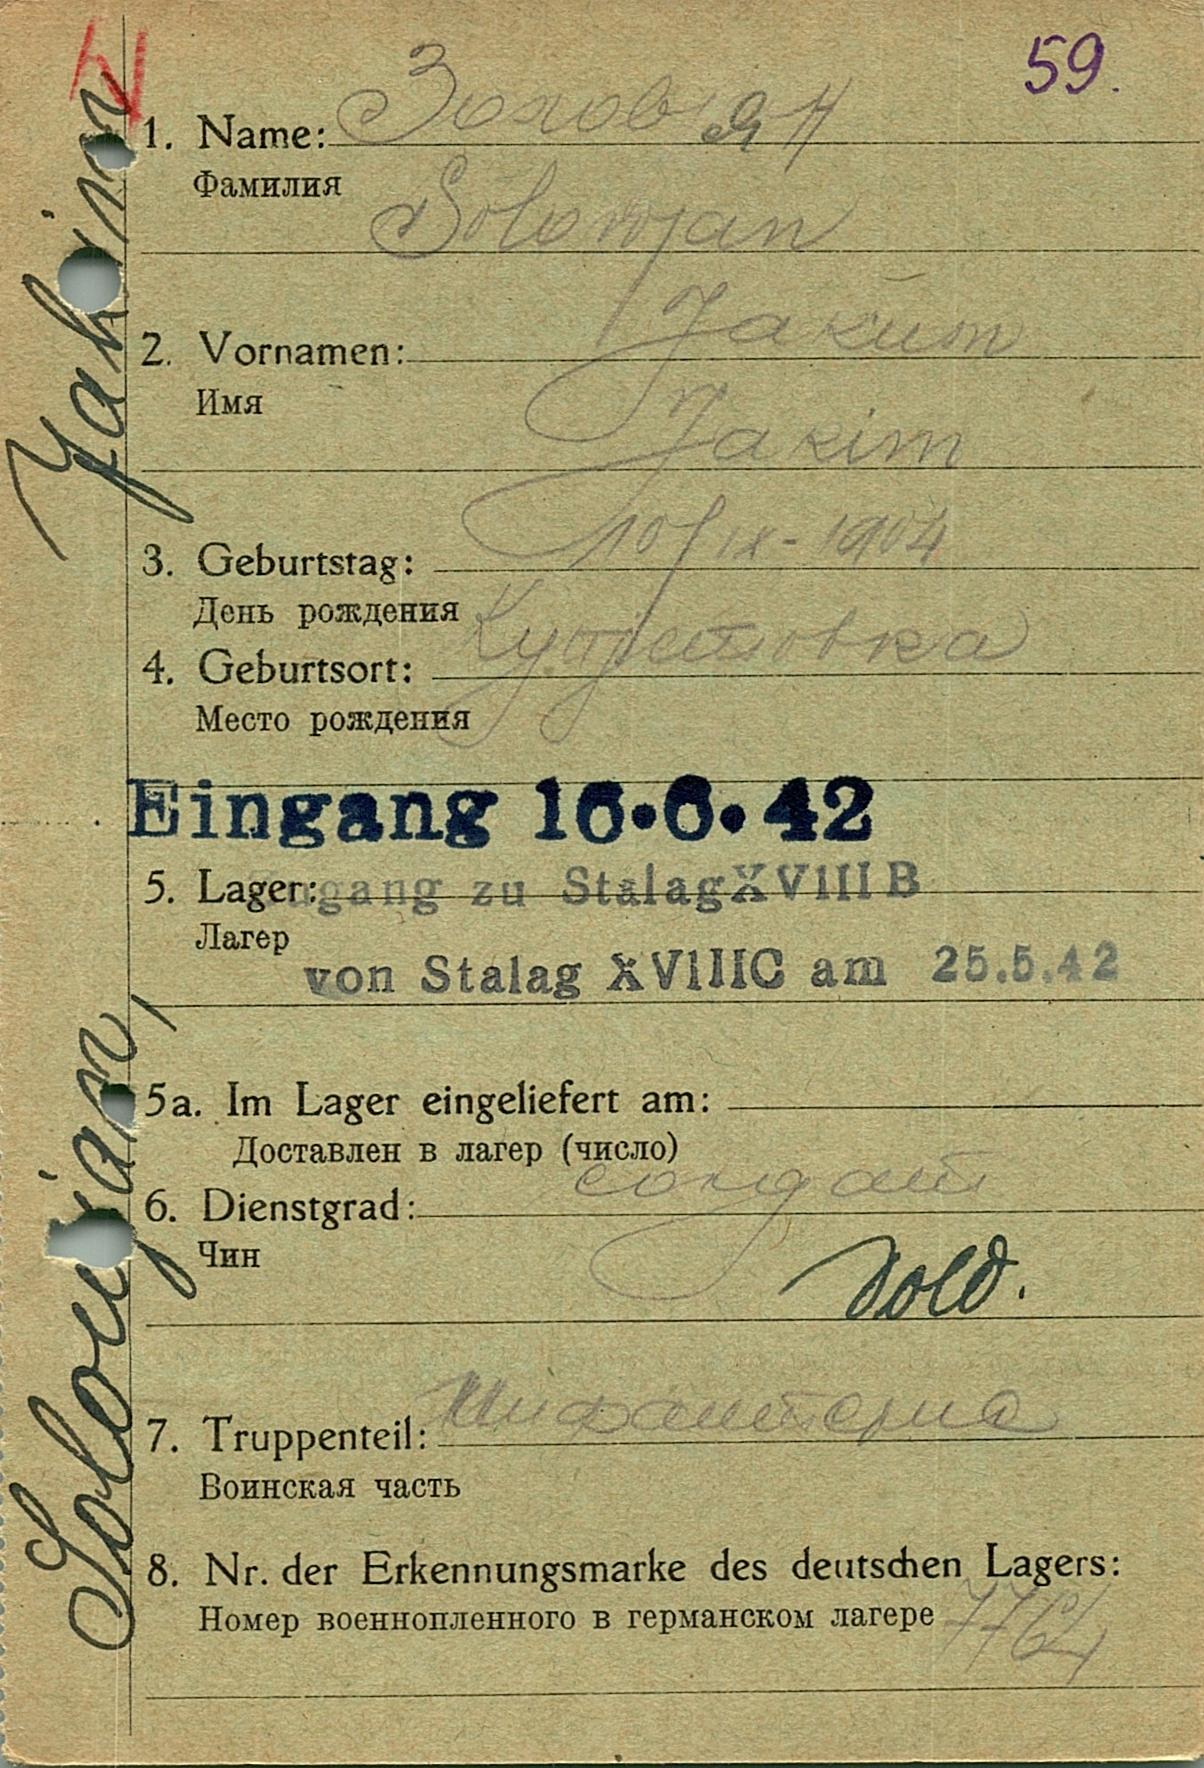 59.
1. Name: Золовян
Фамилия
Solowjan
2. Vornamen: Jakim
Имя
Jakim
3. Geburtstag: 10/IX-1904
День рождения
4. Geburtsort:
Место рождения
Eingang 16.6.42
5. Lager: Zugang zu Stalag XVIII B
Лагер
von Stalag XVIIIC am 25.5.42
5a. Im Lager eingeliefert am:
Доставлен в лагер (число)
6. Dienstgrad: солдат
Чин
Sold.
7. Truppenteil: Инфантерия
Воинская часть
8. Nr. der Erkennungsmarke des deutschen Lagers:
Номер военнопленного в германском лагере
Solowjan, Jakim